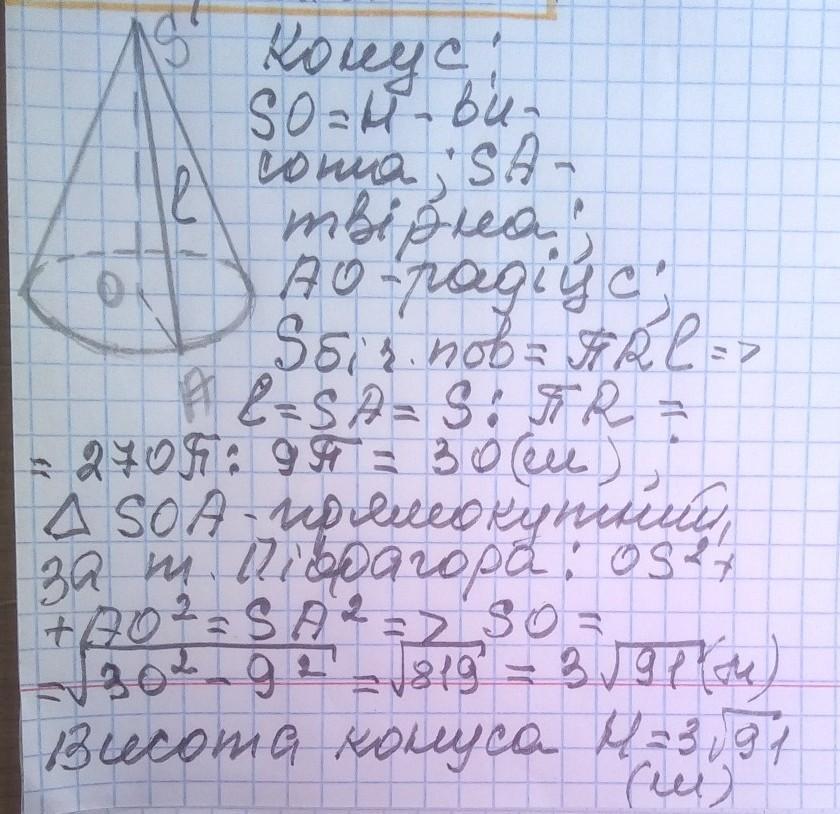 S
Конус:
SO=H-ви-
сота; SA-
твірна;
l
AO-радіус;
O
Sбіч.пов=πRl=>
A
l=SA=S:πR=
=270π:9π=30(м);
Δ SOA-прямокутний,
за т. Піфагора: OS²+
+AO²=SA²=> SO=
=√30²-9²=√819=3√91(м)
Висота конуса H=3√91
(м)